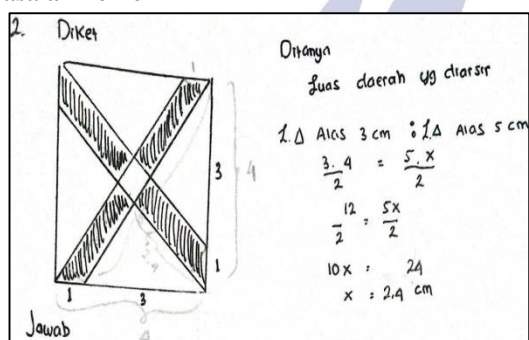 2. Diket
1
3
4
1
1
3
4
Jawab
Ditanya
Luas daerah yg diarsir
L.Δ Alas 3 cm : L.Δ Alas 5 cm
3.4 / 2 = 5.x / 2
12 / 2 = 5x / 2
10x = 24
x = 2,4 cm